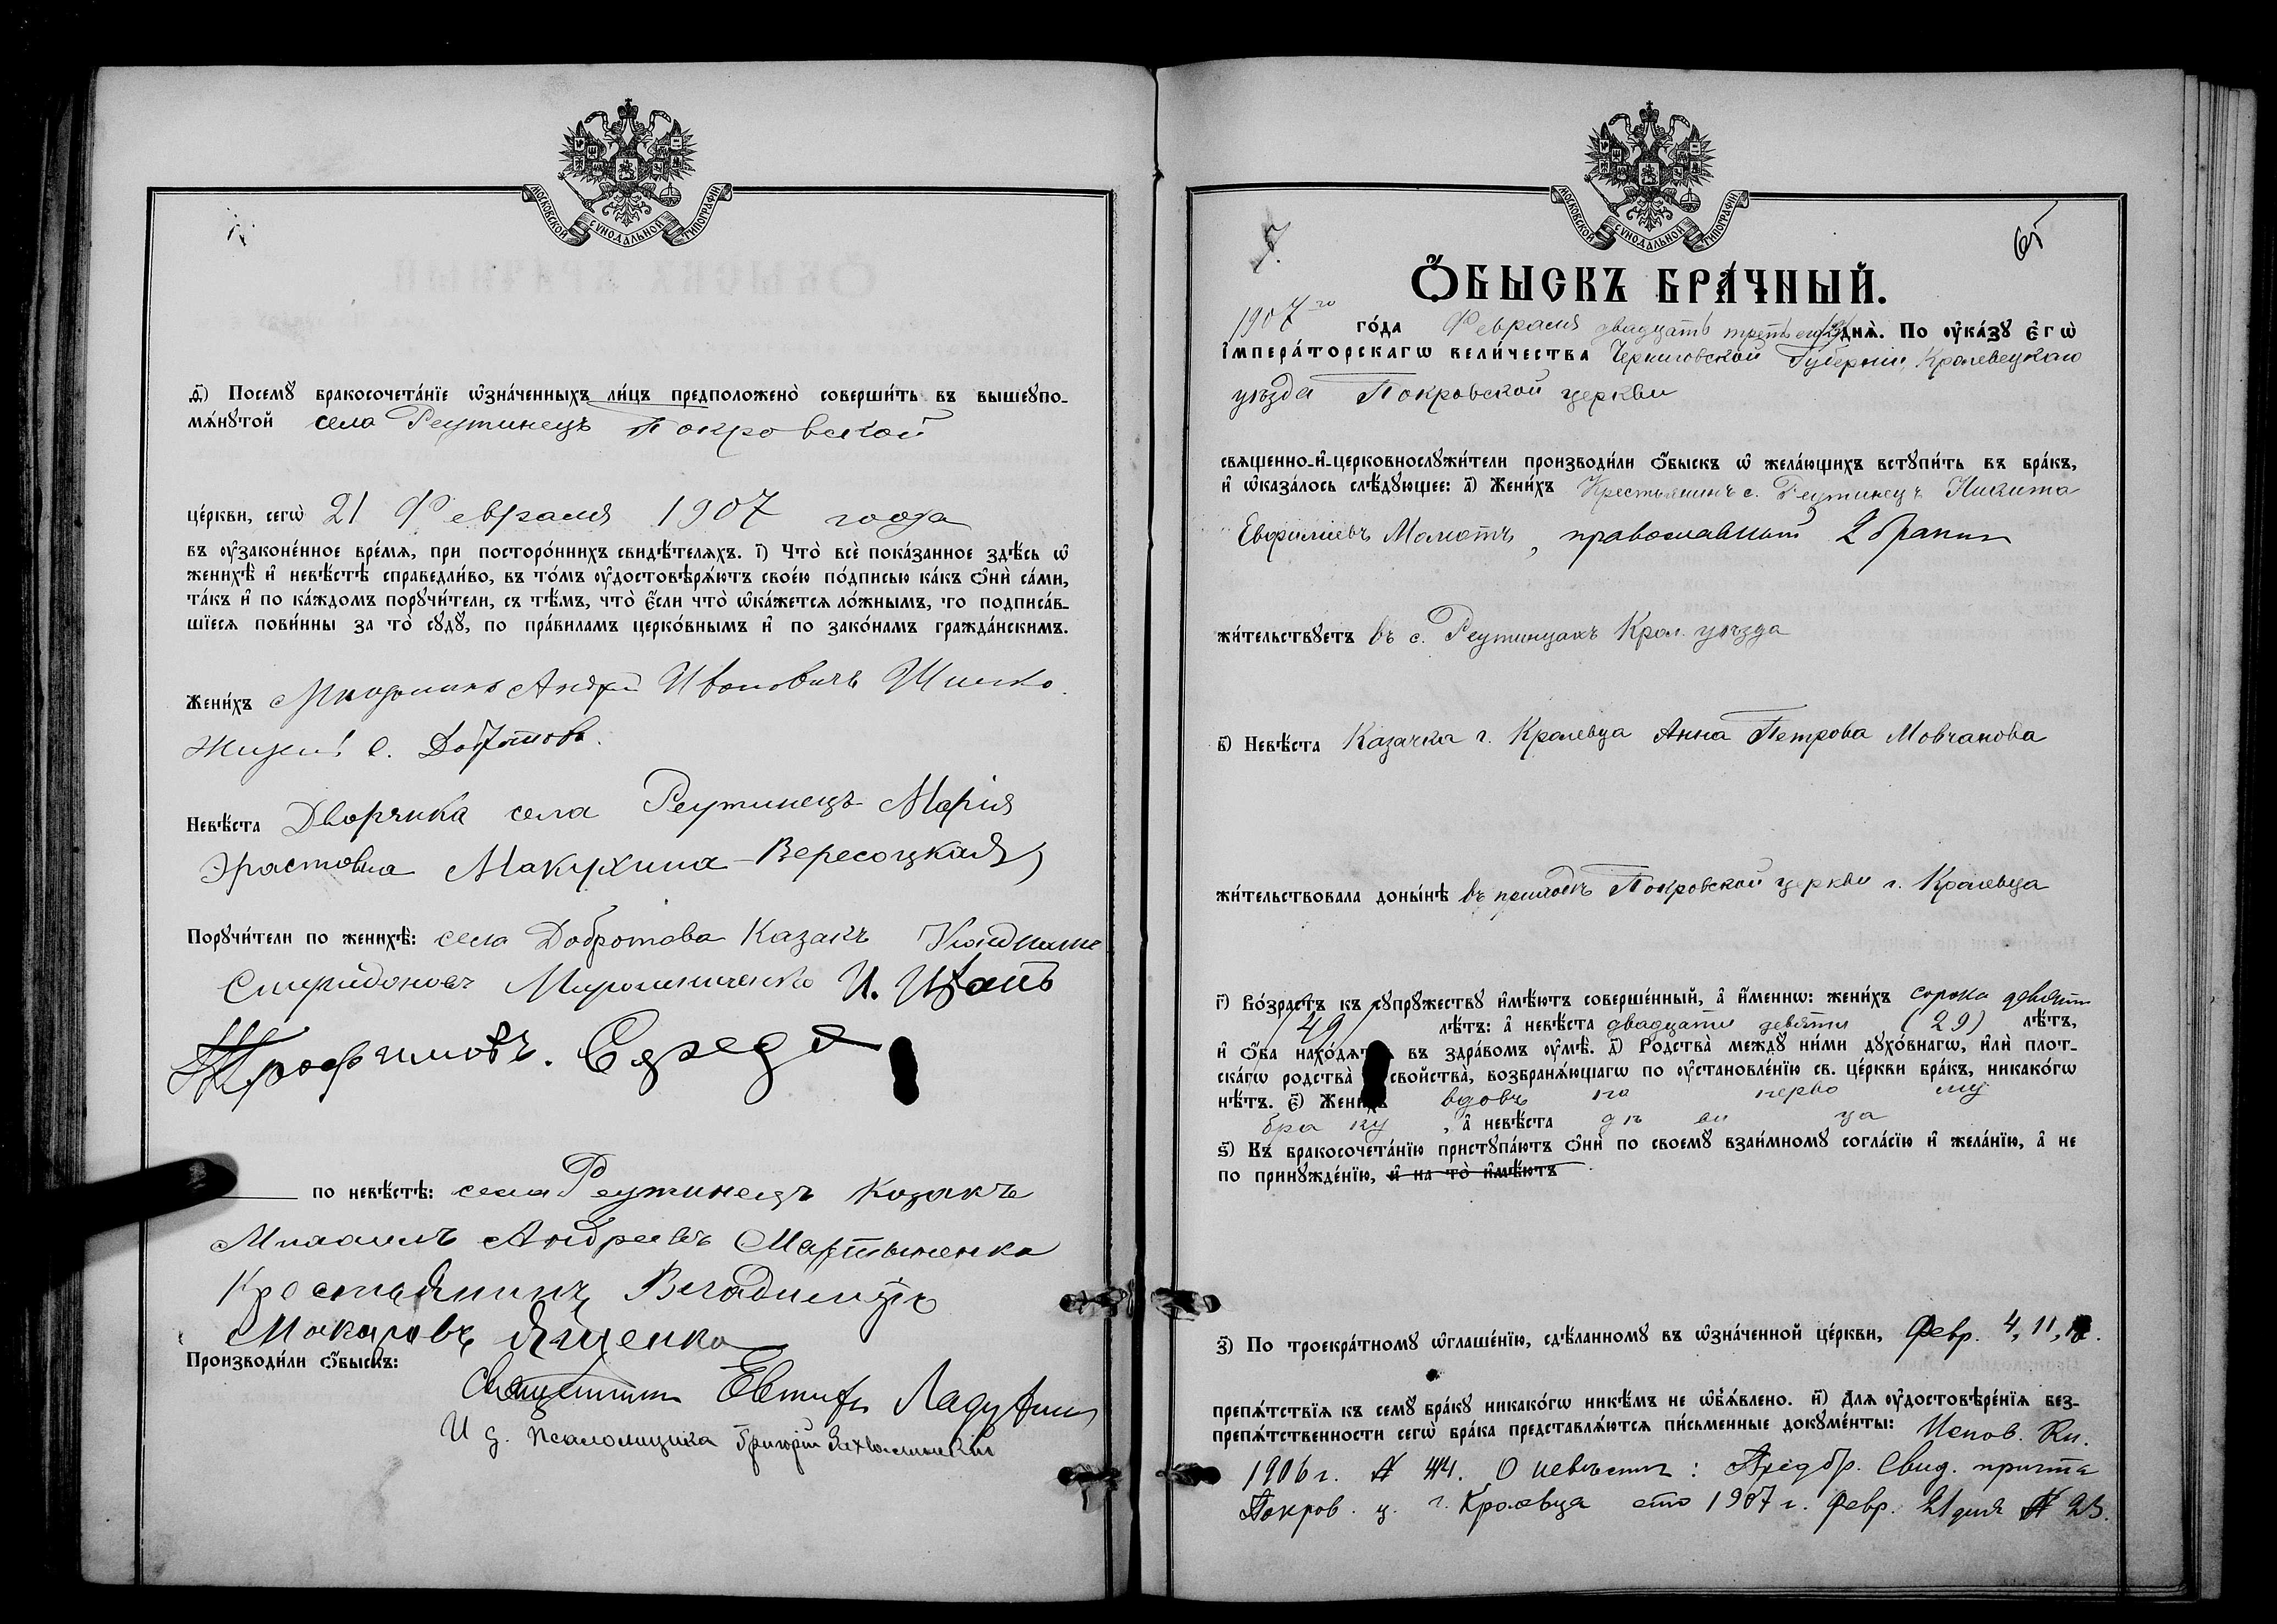 МОСКОВСКОЙ СУНОДАЛЬНОЙ ТИПОГРАФІИ
д҃) Посемꙋ̀ бракосочета́нїе ѡ҆зна́ченныхъ ли́цъ предположено̀ соверши́ть въ вышеꙋпо-
мѧ́нꙋтой села Реутинецъ Покровской
це́ркви, сегѡ̀ 21 Февраля 1907 года
въ ᲂу҆законе́нное вре́мѧ, при посторо́ннихъ свидѣ́телѧхъ. і҃) Что̀ всѐ пока́занное здѣ́сь ѡ҆
женихѣ̀ и҆ невѣ́стѣ справедли́во, въ то́мъ ᲂу҆достовѣрѧ́ютъ свое́ю по́дписью ка́къ ѻ҆нѝ са́ми,
та́къ и҆ по ка́ждомъ порꙋчи́тели, съ тѣ́мъ, что̀ є҆́сли что̀ ѡ҆ка́жетсѧ ло́жнымъ, то подписа́в-
шїесѧ пови́нны за то̀ сꙋдꙋ̀, по пра́виламъ церко́внымъ и҆ по зако́намъ гражда́нскимъ.
Жени́хъ Андрей Ивановичъ Шишко
с. Добротова.
Невѣ́ста Дворянка села Реутинецъ Марія
Эрастовна Макухина-Вересоцкая
Порꙋчи́тели по женихѣ̀: села Добротова Казакъ
Спиридоновъ Мирошниченко И. Цапъ
Трофимовъ. Середа
по невѣ́стѣ: села Реутинецъ козакъ
Михаилъ Андреевъ Мартыненко
Крестьянинъ Владимиръ
Макаровъ Ященко
Производи́ли ѻ҆́быскъ:
Священникъ Евтифъ
И д. псаломщика Григорій
МОСКОВСКОЙ СУНОДАЛЬНОЙ ТИПОГРАФІИ
7.
65
Ѻ҆́БЫСКЪ БРА́ЧНЫЙ.
1907го го́да Февраля двадцать третьего днѧ̀. По ᲂу҆ка́зꙋ є҆гѡ̀
і҆мпера́торскагѡ вели́чества Черниговской Губерніи, Кролевецкаго
уѣзда Покровской церкви
свѧщенно-и҆-церковнослꙋжи́тели производи́ли ѻ҆́быскъ ѡ҆ жела́ющихъ встꙋпи́ть въ бра́къ,
и҆ ѡ҆каза́лось слѣ́дꙋющее: а҃) Жени́хъ Крестьянинъ с. Реутинецъ Никита
Евфиміевъ православный 2 бракомъ
жи́тельствꙋетъ въ с. Реутинцахъ Крол. уѣзда
в҃) Невѣ́ста Казачка г. Кролевца Анна Петрова Мовчанова
жи́тельствовала доны́нѣ въ приходѣ Покровской церкви г. Кролевца
г҃) Во́зрастъ къ сꙋпрꙋ́жествꙋ и҆мѣ́ютъ соверше́нный, а҆ и҆́меннѡ: жени́хъ сорока девяти
(49) лѣ́тъ: а҆ невѣ́ста двадцати девяти (29) лѣ́тъ,
и҆ ѻ҆́ба нахо́дѧтсѧ въ здра́вомъ ᲂу҆мѣ̀. д҃) Родства̀ междꙋ ни́ми дꙋхо́внагѡ, и҆лѝ плот-
ска́гѡ родства̀ свойства̀, возбранѧ́ющагѡ по ᲂу҆становле́нїю св. це́ркви бра́къ, никако́гѡ
нѣ́тъ. є҃) Жени́хъ вдовъ по перво му
бра ку, а҆ невѣ́ста дѣ ви ца
ѕ҃) Къ бракосочета́нїю пристꙋпа́ютъ ѻ҆нѝ по своемꙋ̀ взаи́мномꙋ согла́сїю и҆ жела́нїю, а҆ не
по принꙋжде́нїю, и҆ на то̀ и҆мѣ́ютъ
з҃) По троекра́тномꙋ ѡ҆глаше́нїю, сдѣ́ланномꙋ въ ѡ҆зна́ченной це́ркви, Февр. 4, 11,
препѧ́тствїѧ къ семꙋ̀ бра́кꙋ никако́гѡ никѣ́мъ не ѡ҆б̾ѧ́влено. и҃) Длѧ ᲂу҆достовѣре́нїѧ без-
препѧ́тственности сегѡ̀ бра́ка представлѧ́ютсѧ пи́сьменные докꙋме́нты: Испов. Кн.
1906 г. № 44. О невѣстѣ: Предбр. Свид. причта
Покров. ц. г. Кролевца отъ 1907 г. Февр. 21 дня № 23.